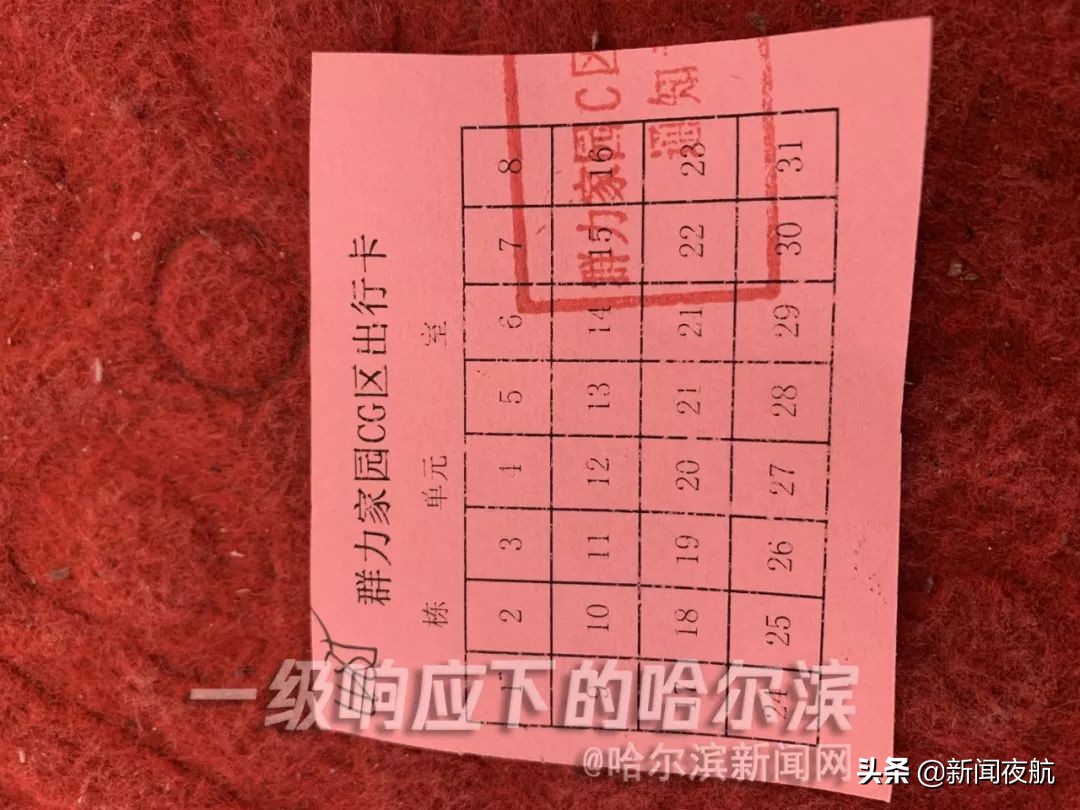 群力家园CG区出行卡
栋 单元 室
1 2 3 4 5 6 7 8
9 10 11 12 13 14 15 16
17 18 19 20 21 21 22 23
24 25 26 27 28 29 30 31
群力家园C区
一级响应下的哈尔滨
@哈尔滨新闻网
头条 @新闻夜航